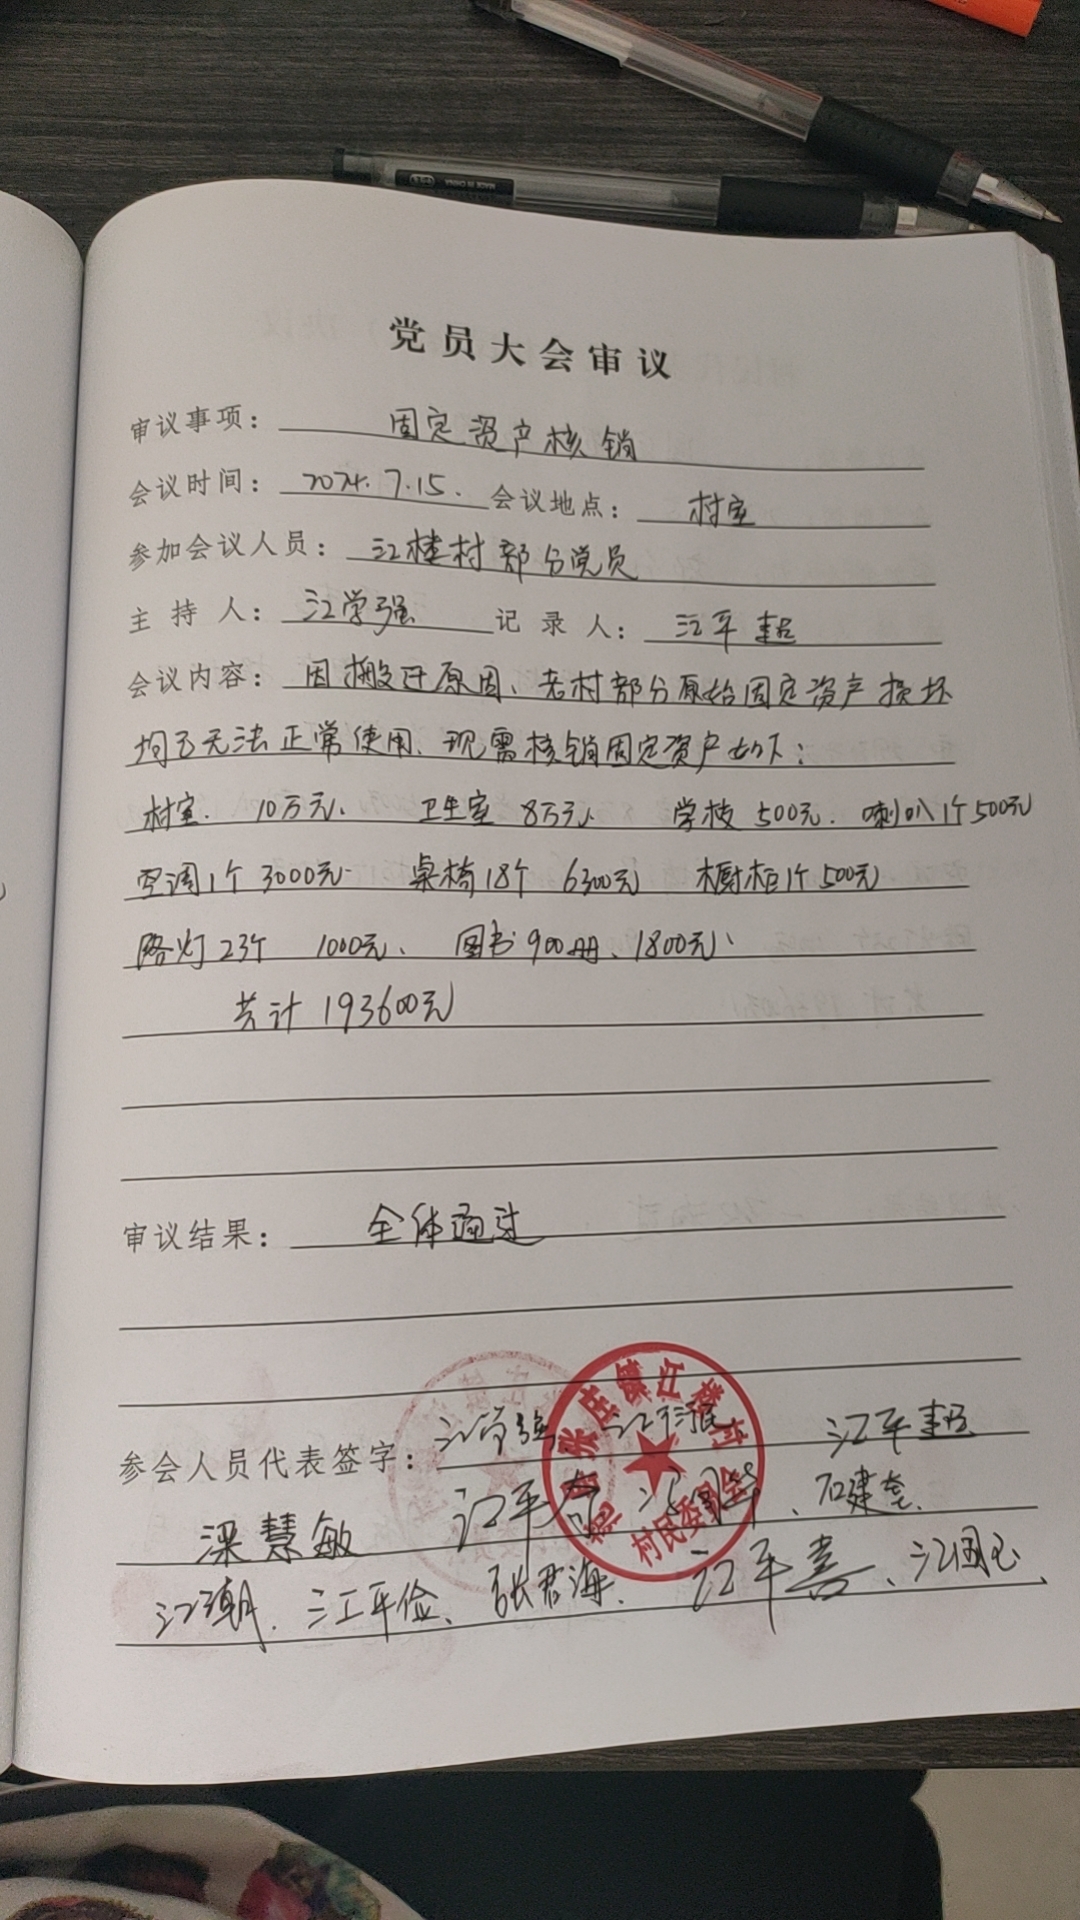 党员大会审议
审议事项： 固定资产核销
会议时间： 2024.7.15. 会议地点： 村室
参加会议人员： 江楼村部分党员
主持人： 江学强 记录人： 江平超
会议内容： 因搬迁原因、老村部分原始固定资产损坏
均已无法正常使用、现需核销固定资产如下：
村室、 10万元、 卫生室 8万元、 学校 500元、 喇叭1个500元
空调1个 3000元、 桌椅18个 6300元 橱柜1个500元
路灯23个 1000元、 图书900册、1800元、
共计 193600元
审议结果： 全体通过
参会人员代表签字： 江学强 江平超
梁慧敏 江国华、石建奎、
江潮、江平俭、张君海、江平喜、江国玉、
张庄镇江楼村
村民委员会
MADE IN CHINA